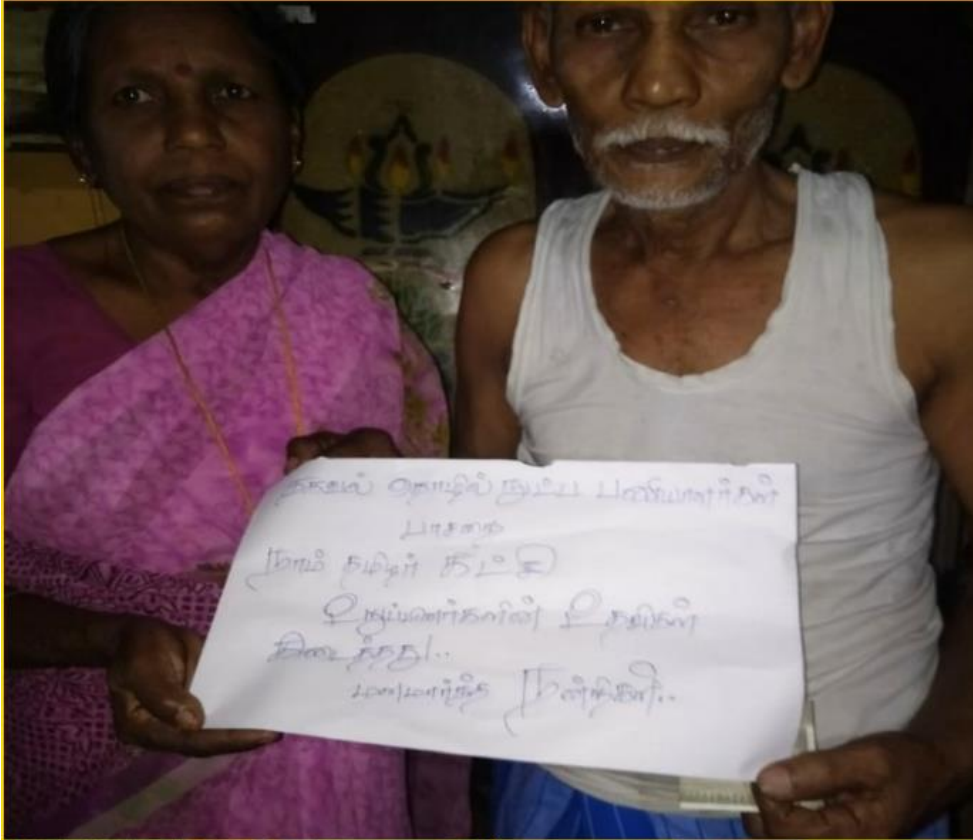 தகவல் தொழில் நுட்ப பணியாளர்கள்
பாசறை
நாம் தமிழர் கட்சி
உறுப்பினர்களின் உதவிகள்
கிடைத்தது!..
மனமார்ந்த நன்றிகள்..